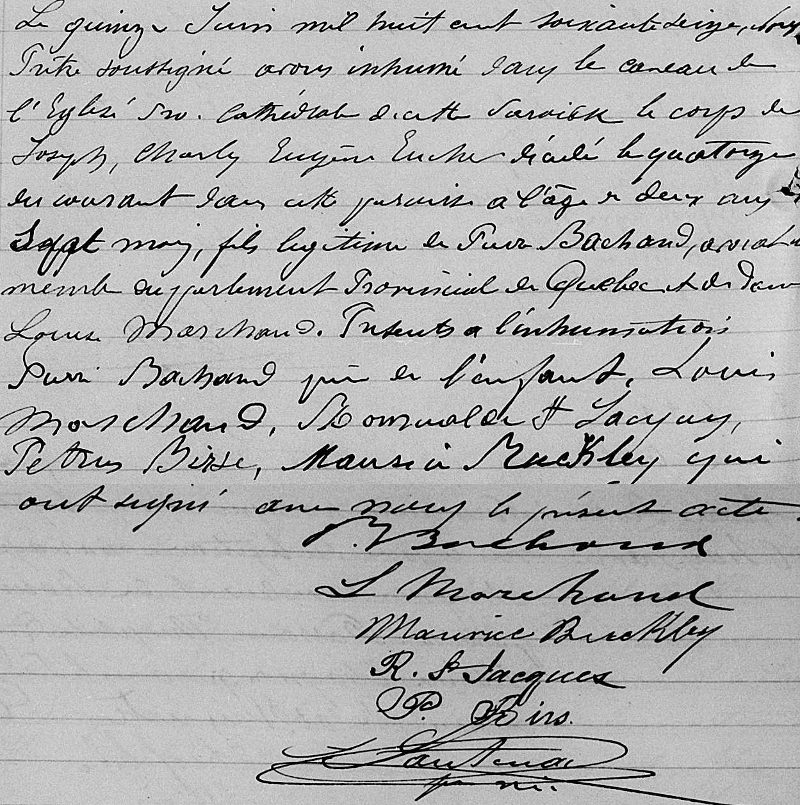 Le quinze Juin mil huit cent soixante seize, Nous
Prêtre soussigné avons inhumé dans le caveau de
l'Eglise Cathédrale de cette Paroisse le corps de
Joseph, Charles Eugène décédé le quatorze
du courant dans cette paroisse a l'âge de deux ans
Sept mois, fils légitime de Pierre Bachand, avocat
membre du parlement Provincial de Québec et de Dame
Louise Marchand. Présents a l'inhumation
Pierre Bachand père de l'enfant, Louis
Marchand, Romuald St Jacques,
Petrus Maurice Buckley qui
ont signé avec nous le présent acte.
P. Bachand
L Marchand
Maurice Buckley
R. St Jacques
P.